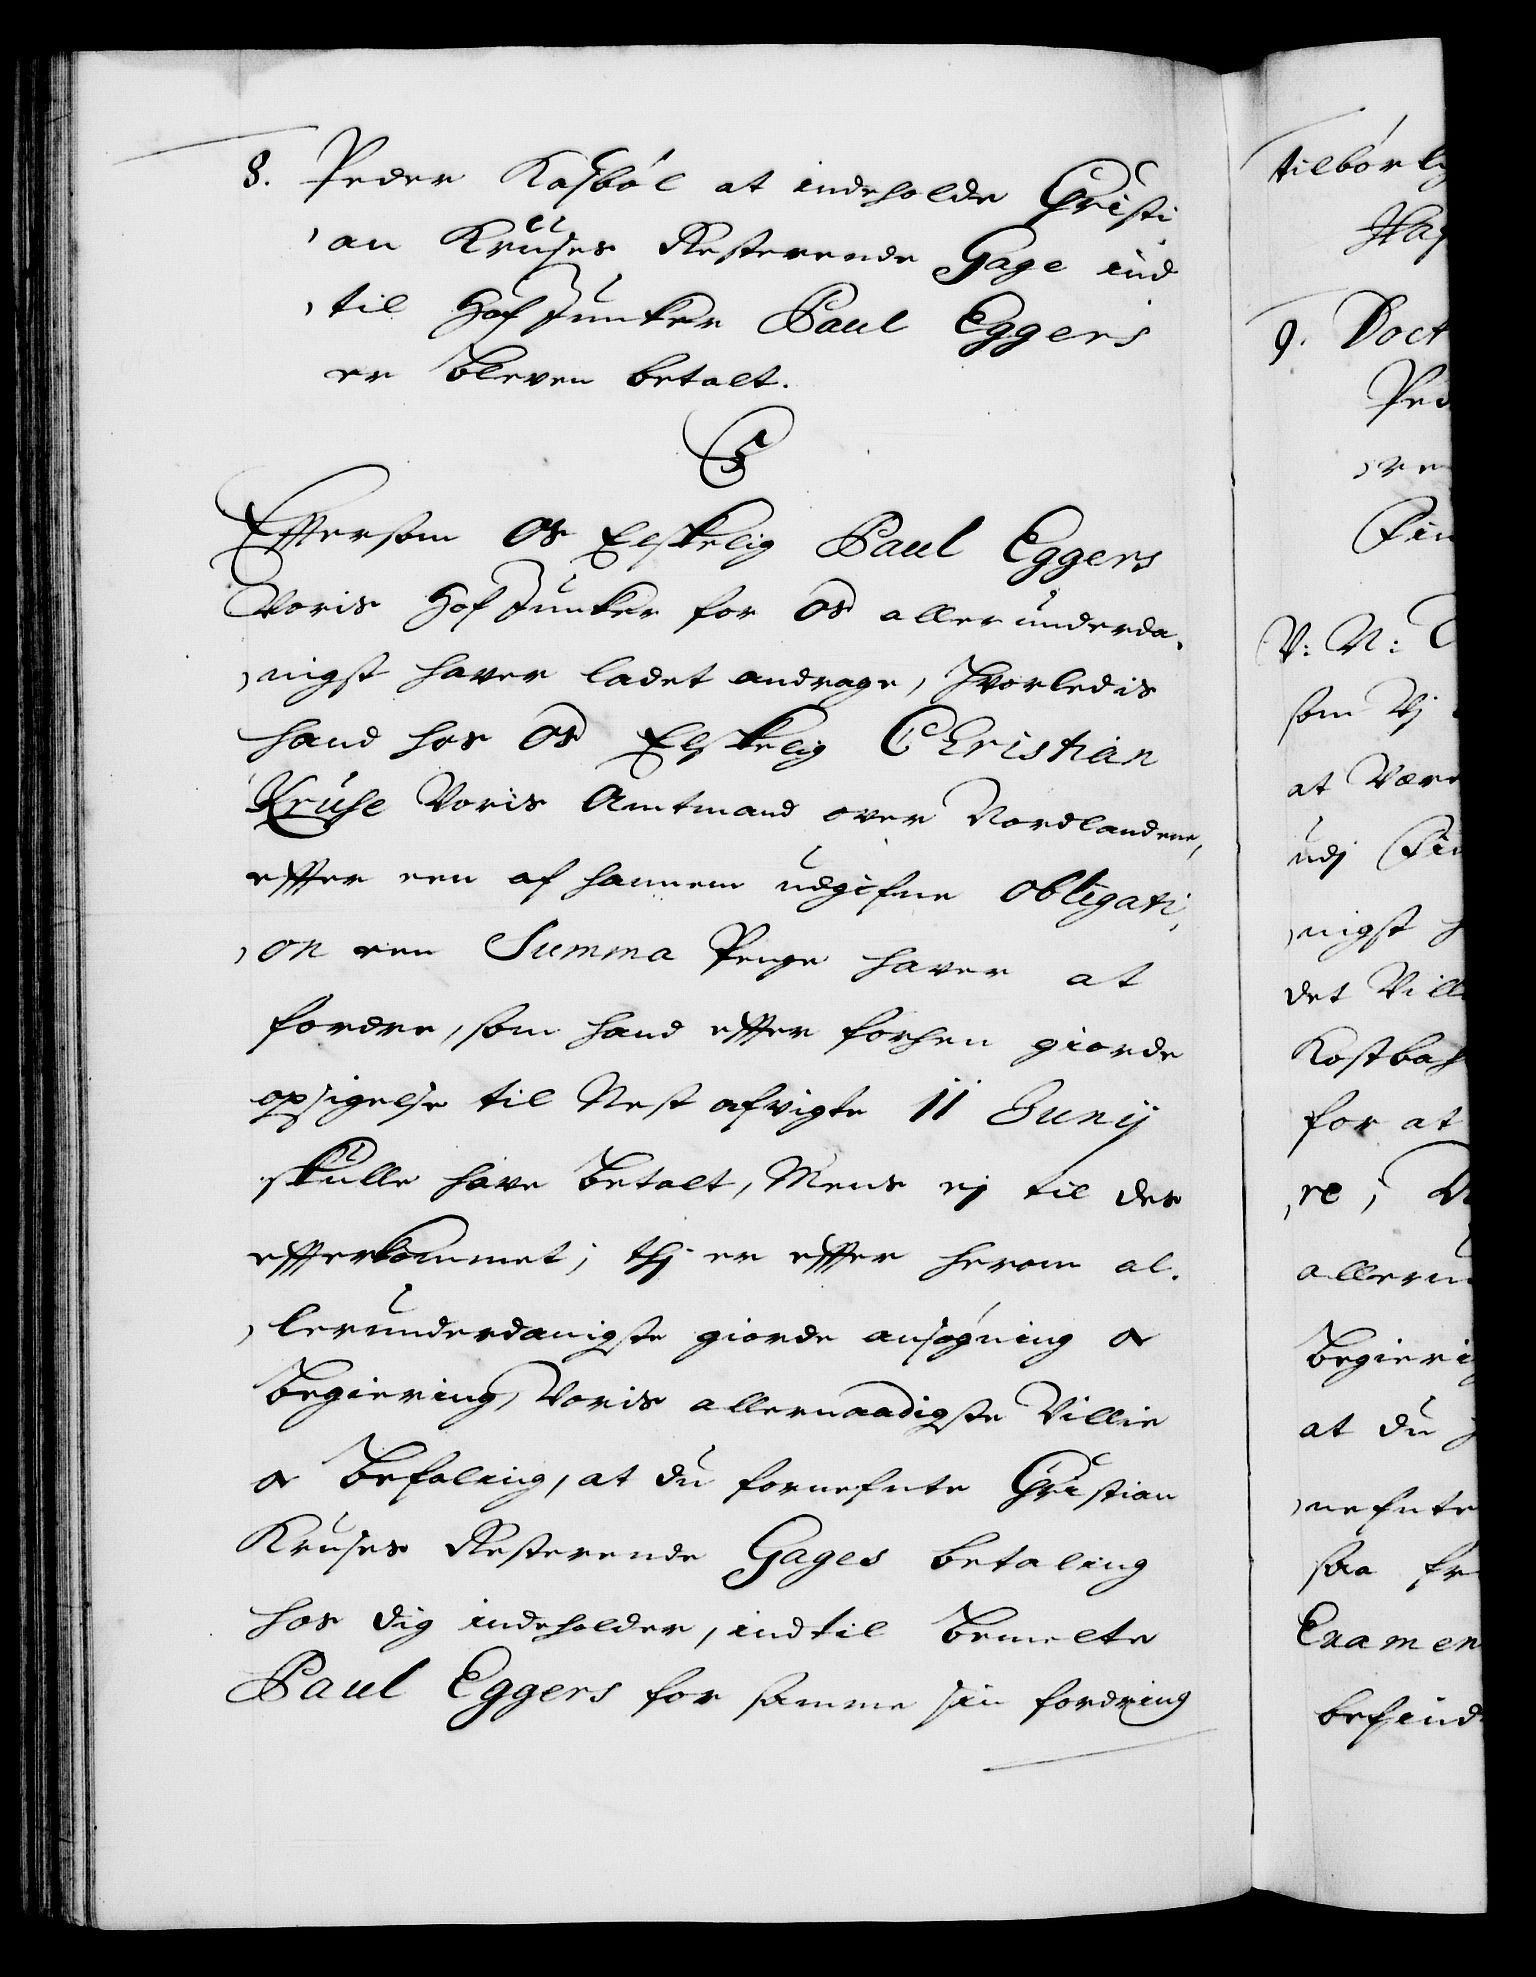 8. Peder Kasböl at indeholde Christi
,an Kruses Resterende Gage ind
,til Hof Junker Paul Eggers
er bleven betalt.
C5
Effersom Os Elskelig Paul Eggers
Voris Hof Junker for Os allerunderda,
,nigst haver ladet andrage, hvorledis
hand hos Os Elskelig Christian
Kruse Voris Amtmand over Nordlandene,
effter een af hannem udgifne obligati,
,on een Summa Penge haver at
fordre, som hand effter forhen giorde
opsigelse til Nest afvigte 11 Junij
skulle have betalt, Mens ej til des
effterkommet; thj er effter herom al,
,lerunderdanigste giorde ansøgning oc
Begiering, Voris allernaadigste Villie
oc Befaling, at du fornefnte Christian
Kruses Resterende Gages betaling
hos dig indeholder, indtil bemelte
Paul Eggers for samme sin fordring
tilbørlig
9. Doct
Ped
,ren
Fin
V: N: C
som Vj
at Være
udj Fin
,nigst h
det Vill
Kostbah
for at
,re,
allerun
Begierin
at du h
,nefnte
saa fr
Examen
befind